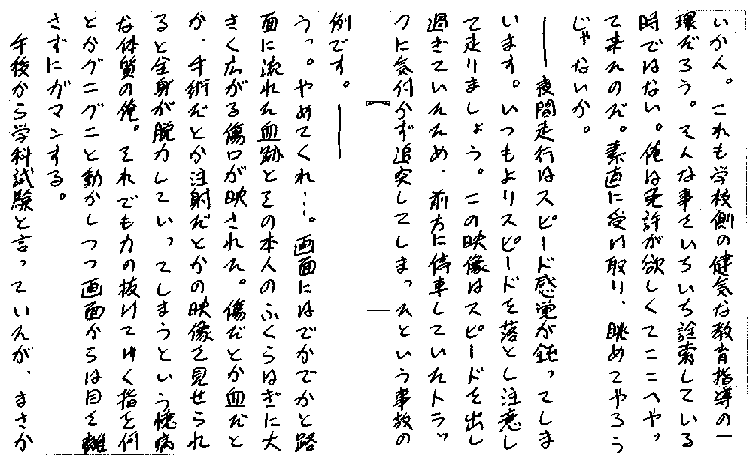 いかん。これも学校側の健気な教育指導の一
環だろう。そんな事をいちいち詮索している
時ではない。俺は免許が欲しくてここへやっ
て来たのだ。素直に受け取り、眺めてやろう
じゃないか。
――夜間走行はスピード感覚が鈍ってしま
います。いつもよりスピードを落とし注意し
て走りましょう。この映像はスピードを出し
過ぎていたため、前方に停車していたトラッ
クに気付かず追突してしまったという事故の
例です。――
うっ。やめてくれ…。画面にはでかでかと路
面に流れた血跡とその本人のふくらはぎに大
きく広がる傷口が映された。傷だとか血だと
か、手術だとか注射だとかの映像を見せられ
ると全身が脱力していってしまうという憶病
な体質の俺。それでも力の抜けてゆく指を何
とかグニグニと動かしつつ画面からは目を離
さずにガマンする。
午後から学科試験と言っていたが、まさか